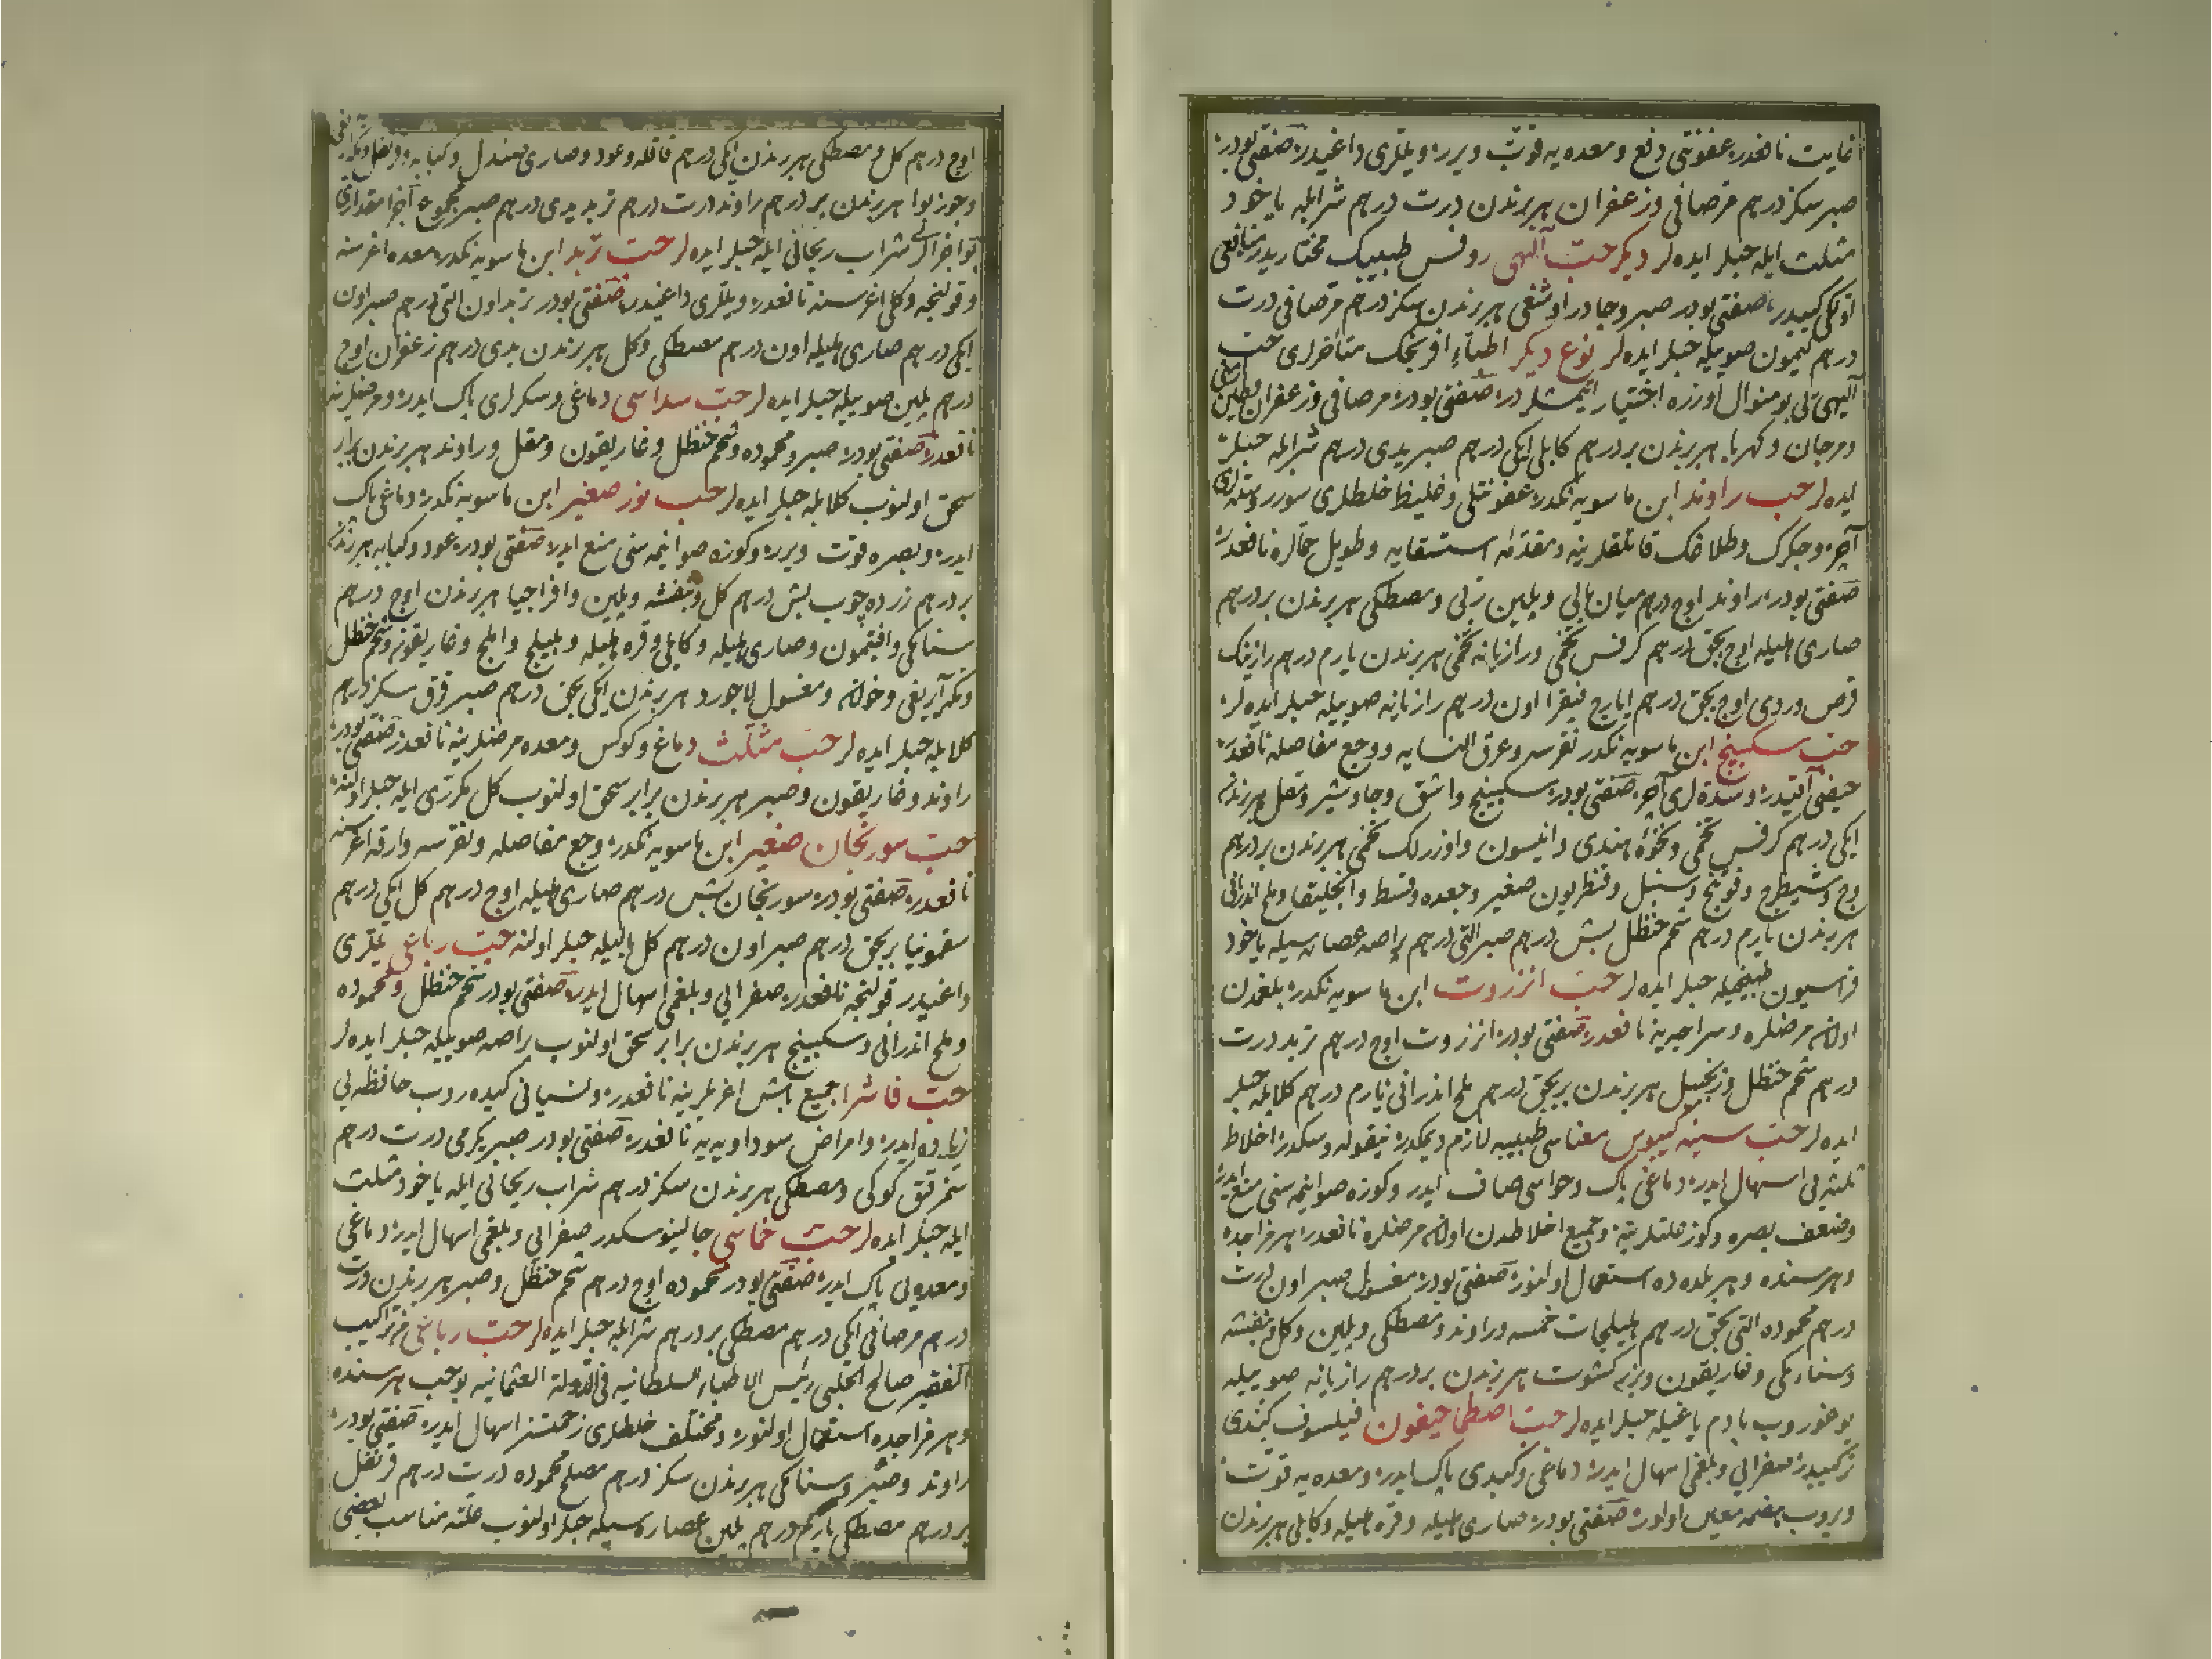 غایت نافعدر عفونتی دفع و معده یه قوّت ویرر و یللری داغیدر صفتی بودر
صبر سکز درهم مرصافی و زعفران هر برندن درت درهم شرابله یاخود
مثلث ایله حبلر ایده لر دیکر حبّ الهی روفس طبیبک مختاریدر منافعی
اولکی کبیدر صفتی بودر صبر و جادر اوشغی هر برندن سکز درهم مرصافی درت
درهم لیمون صوییله حبلر ایده لر نوع دیکر اطبّاء افرنجک متأخرلری حب
الهی یی بو منوال اوزره اختیار ایتمشلر در صفتی بودر مرصافی و زعفران طین
و مرجان و کهربا هر برندن بر درهم کابلی ایکی درهم صبر یدی درهم شرابله حبلر
ایده لر حب راوند ابن ماسویه نکدر عفونتلی و غلیظ خلطلری سورر
آچر و جکرک و طلاغک قاتلقلرینه و مقدّمه استسقایه و طویل حمالره نافعدر
صفتی بودر راوند اوج درهم میان بالی و یلین ربّی و مصطکی هر برندن بر درهم
صاری هلیله اوج بجق درهم کرفس تخمی و رازیانه تخمی هر برندن یارم درهم رازینک
قرص وردی اوج بجق درهم ایارج فیقرا اون درهم رازیانه صوییله حبلر ایده لر
حبّ سکبینج ابن ماسویه نکدر نقرسه و عرق النسایه و وجع مفاصله نافعدر
حیضی آقیدر و سدّه لری آچر صفتی بودر سکبینج و اشق و جاوشیر و مقل هر برندن
ایکی درهم کرفس تخمی و نخوه هندی و انیسون و اوزرلک تخمی هر برندن بر درهم
وج و شیطرج و فوتنج و سنبل و قنطریون صغیر و جعده و قسط و انجلیقا و ملح اندرانی
هر برندن یارم درهم شحم حنظل بش درهم صبر التی درهم پراصه عصاره سیله یاخود
فراسیون طبیخیله حبلر ایده لر حبّ انزروت ابن ماسویه نکدر بلغمدن
اولان مرضلره و سراجه یه نافعدر صفتی بودر انزروت اوج درهم تربد درت
درهم شحم حنظل و زنجبیل هر برندن بر بجق درهم ملح اندرانی یارم درهم کلابله حبلر
ایده لر حبّ سینه کیبوس معناسی طبیبه لازم دیمکدر نیقوله وسکدر اخلاط
ثلثه یی اسهال ایدر دماغی پاک و حواسی صاف ایدر و کوزه صو اینمه سنی منع ایدر
و ضعف بصره و کوز علتلرینه و جمیع اخلاطدن اولان مرضلره نافعدر هر مزاجده
و هر سنده و هر بلده ده استعمال اولنور صفتی بودر مغسول صبر اون درت
درهم محموده التی بجق درهم هلیلجات خمسه و راوند و مصطکی و یلین و کل و بنفشه
و سنامکی و غاریقون و بزر کشوت هر برندن بر درهم رازیانه صوییله
یوغوروب بادم یاغیله حبلر ایده لر حبّ اصطماحیقون فیلسوف کندی
ترکیبیدر صفرایی و بلغمی اسهال ایدر دماغی و کبدی پاک ایدر و معده یه قوّت
ویروب هضمه معین اولور صفتی بودر صاری هلیله و قره هلیله و کابلی هر برندن
اوج درهم کل و مصطکی هر برندن ایکی درهم قاقله و عود و صاری صندل و کبابه و قرنفل
و جوز بوا هر برندن بر درهم راوند درت درهم تربد یدی درهم صبر مجموع اجزا مقداری
بو اجزالری شراب ریحانی ایله حبلر ایده لر حبّ تربد ابن ماسویه نکدر معده اغریسنه
و قولنجه و کلی اغریسنه نافعدر و یللری داغیدر صفتی بودر تربد اون التی درهم صبر اون
ایکی درهم صاری هلیله اون درهم مصطکی و کل هر برندن یدی درهم زعفران اوج
درهم یلین صوییله حبلر ایده لر حبّ سداسی دماغی و سکرلری پاک ایدر و مرضلرینه
نافعدر صفتی بودر صبر و محموده و شحم حنظل و غاریقون و مقل و راوند هر برندن برابر
سحق اولنوب کلابله حبلر ایده لر حب نور صغیر ابن ماسویه نکدر دماغی پاک
ایدر و بصره قوّت ویرر و کوزه صو اینمه سنی منع ایدر صفتی بودر عود و کبابه هر برندن
بر درهم زرده چوب بش درهم کل و بنفشه و یلین و افراجیا هر برندن اوج درهم
سنامکی و افتیمون و صاری هلیله و کابلی و قره هلیله و بلیلج و املج و غاریقون و شحم حنظل
و مغسول لاجورد هر برندن ایکی بجق درهم صبر قرق سکز درهم
کلابله حبلر ایده لر حبّ مثلّث دماغ و کوکس و معده مرضلرینه نافعدر صفتی بودر
راوند و غاریقون و صبر هر برندن برابر سحق اولنوب کل مکرّری ایله حبلر اولنه
حبّ سورنجان صغیر ابن ماسویه نکدر وجع مفاصله و نقرسه و ارقه اغریسنه
نافعدر صفتی بودر سورنجان بش درهم صاری هلیله اوج درهم کل ایکی درهم
سقمونیا بر بجق درهم صبر اون درهم کل بالیله حبلر اولنه حبّ رباعی یللری
داغیدر قولنجه نافعدر صفرایی و بلغمی اسهال ایدر صفتی بودر شحم حنظل و محموده
و ملح اندرانی و سکبینج هر برندن برابر سحق اولنوب پراصه صوییله حبلر ایده لر
حبّ فاشرا جمیع باش اغریلرینه نافعدر و نسیانی کیده روب حافظه یی
زیاده ایدر و امراض سوداویه یه نافعدر صفتی بودر صبر یکرمی درت درهم
کوکی و مصطکی هر برندن سکز درهم شراب ریحانی ایله یاخود مثلث
ایله حبلر ایده لر حبّ خماسی جالینوسکدر صفرایی و بلغمی اسهال ایدر دماغی
و معده یی پاک ایدر صفتی بودر محموده اوج درهم شحم حنظل و صبر هر برندن درت
درهم مرصافی ایکی درهم مصطکی بر درهم شرابله حبلر ایده لر حبّ رباعی من تراکیب
الفقیر صالح الحلبی رئیس الاطباء السلطانیه فی الدولة العثمانیه بو حب هر سنده
و هر مزاجده استعمال اولنور و مختلف خلطلری زحمتسز اسهال ایدر صفتی بودر
راوند و صبر و سنامکی هر برندن سکز درهم مصلح محموده درت درهم قرنفل
بر درهم مصطکی یارم درهم یلین عصاره سیله حبلر اولنوب علته مناسب بعضی